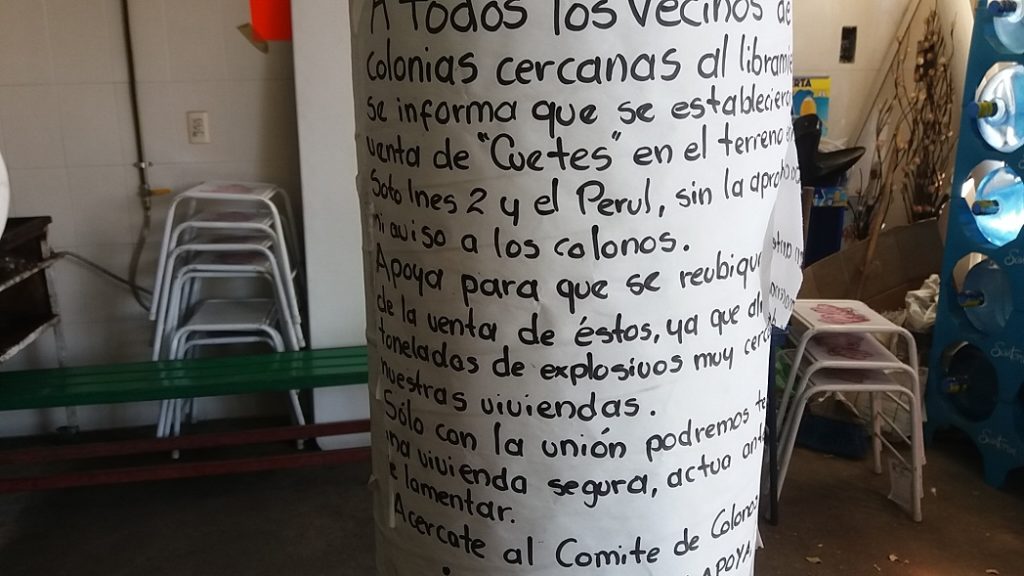 A todos los vecinos de
colonias cercanas al
se informa que se
venta de "Cuetes" en el terreno
Soto Ines 2 y el Perul, sin la
ni aviso a los colonos.
Apoya para que se
de la venta de éstos, ya que
toneladas de explosivos muy
nuestras viviendas.
Sólo con la unión podremos
vivienda segura, actua
lamentar.
Acercate al Comite de
APOYA